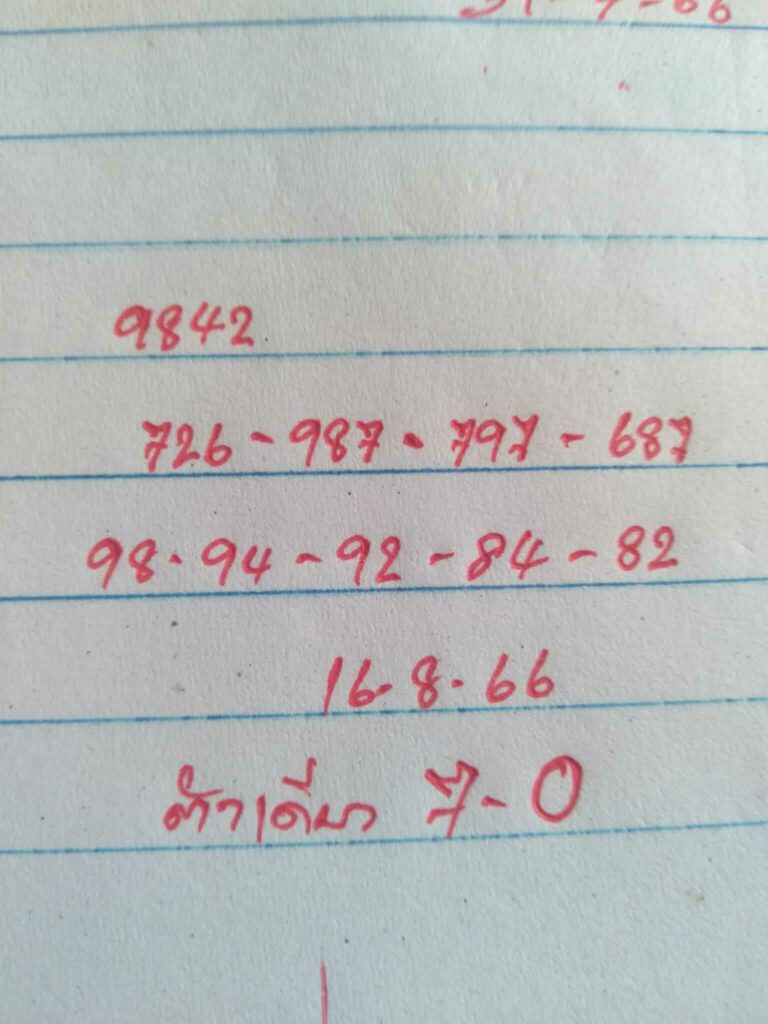 9842
726 - 987 - 797 - 687
98 - 94 - 92 - 84 - 82
16-8-66
ตัวเดียว 7 - 0